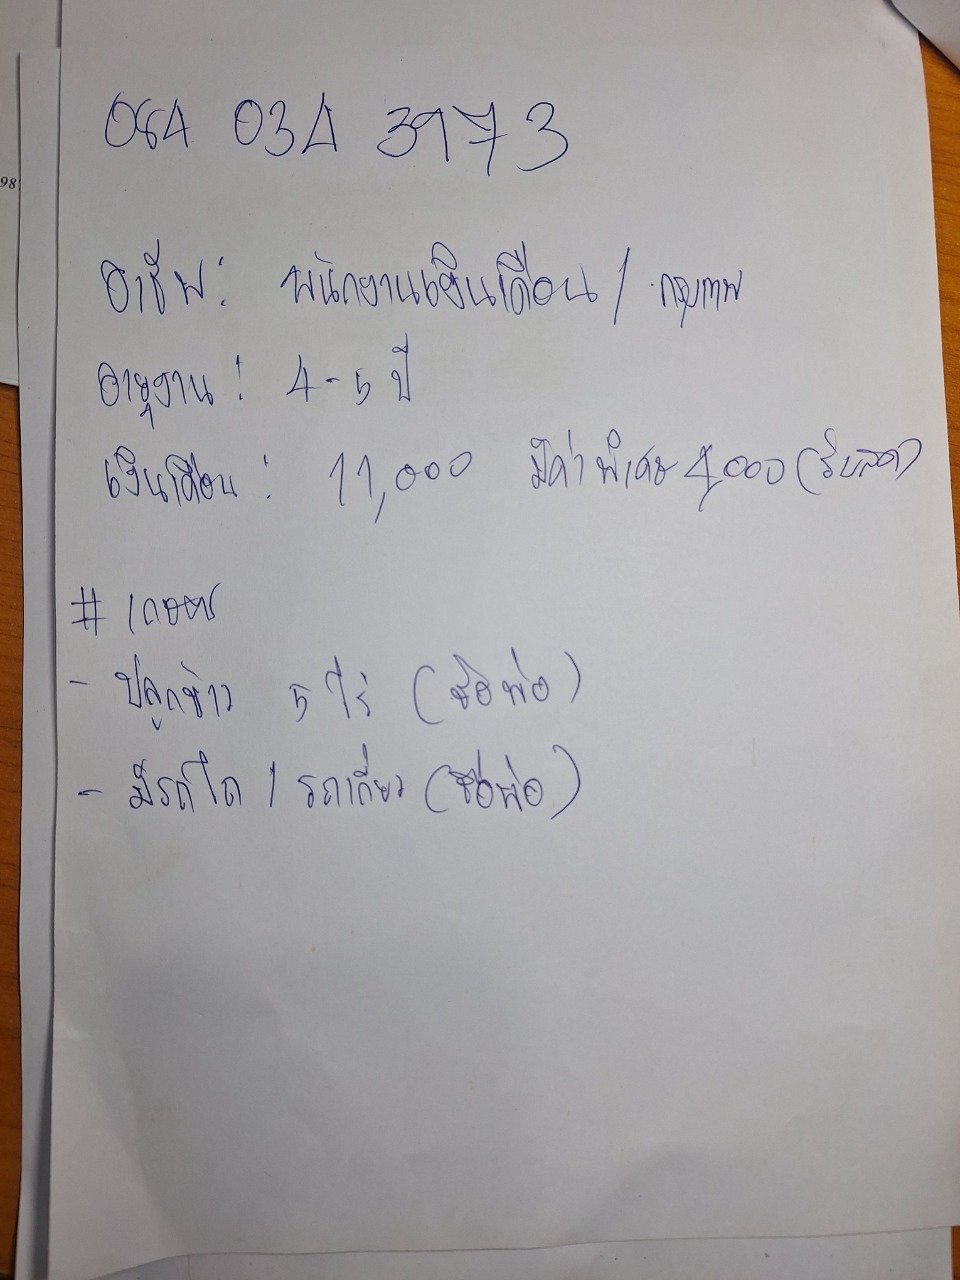 98
084 034 3973
อาชีพ : พนักงานเงินเดือน / กรุงเทพ
อายุงาน : 4-5 ปี
เงินเดือน : 11,000 มีค่าพิเศษ 4,000 (รับสด)
# เกษตร
- ปลูกข้าว 5 ไร่ (ชื่อพ่อ)
- มีรถไถ / รถเกี่ยว (ชื่อพ่อ)